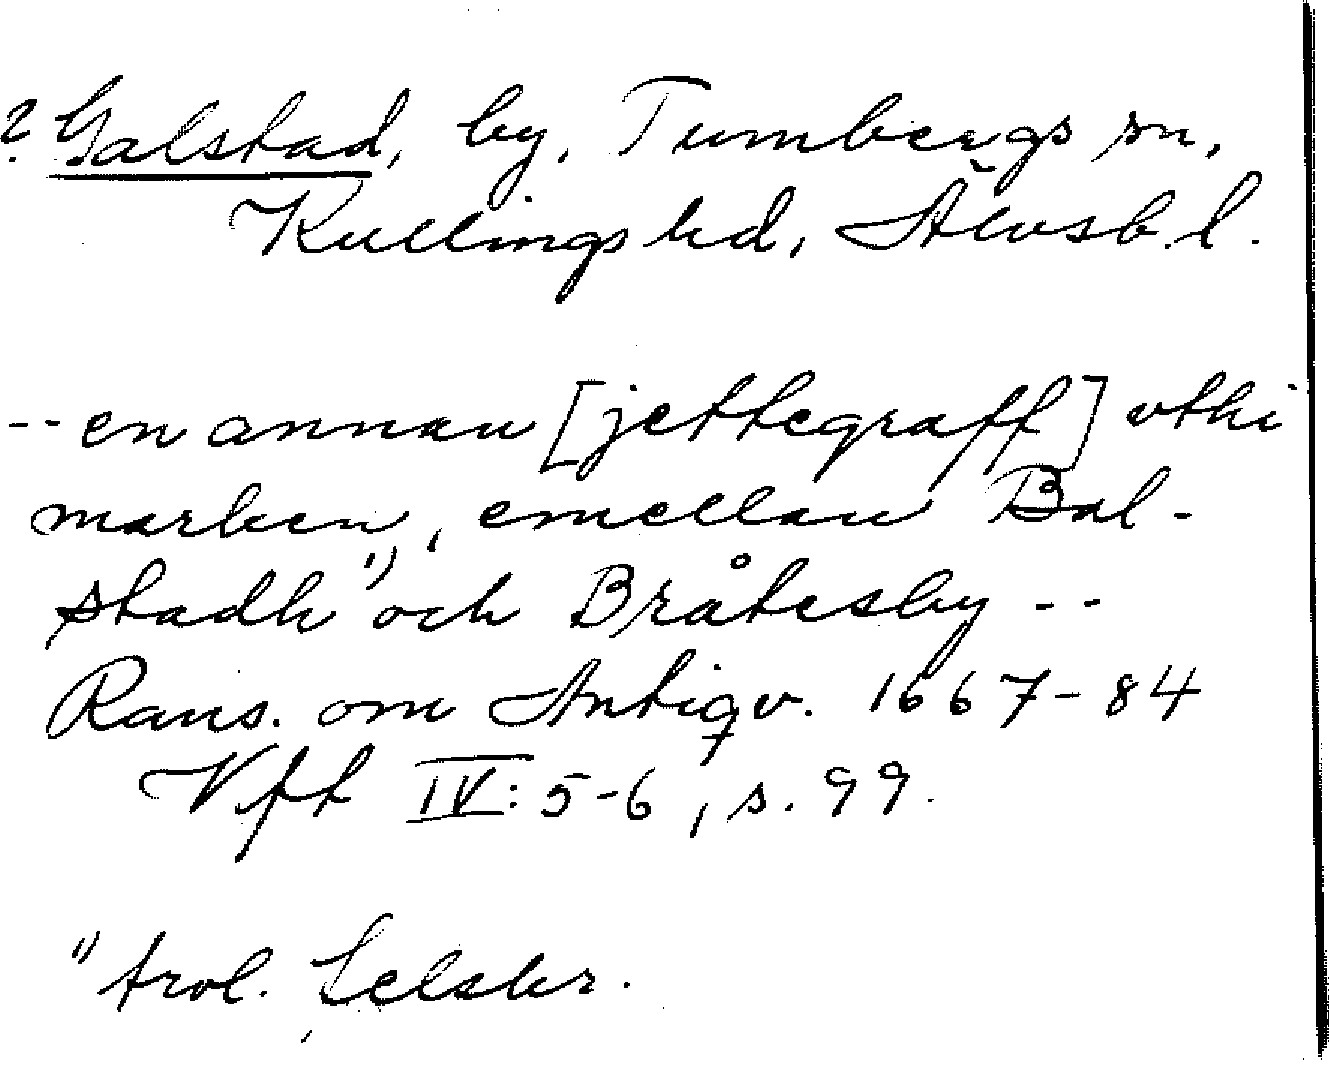 ? Galstad, by, Tumbergs sn,
Kullings hd, Älvsb. l.
-- en annan [jettegraff] vthi
marken, emellan Bal-
stadh 1) och Bråtesby --
Rans. om Antiqv. 1667-84
Vfft IV: 5-6, s. 99.
1) trol. felskr.